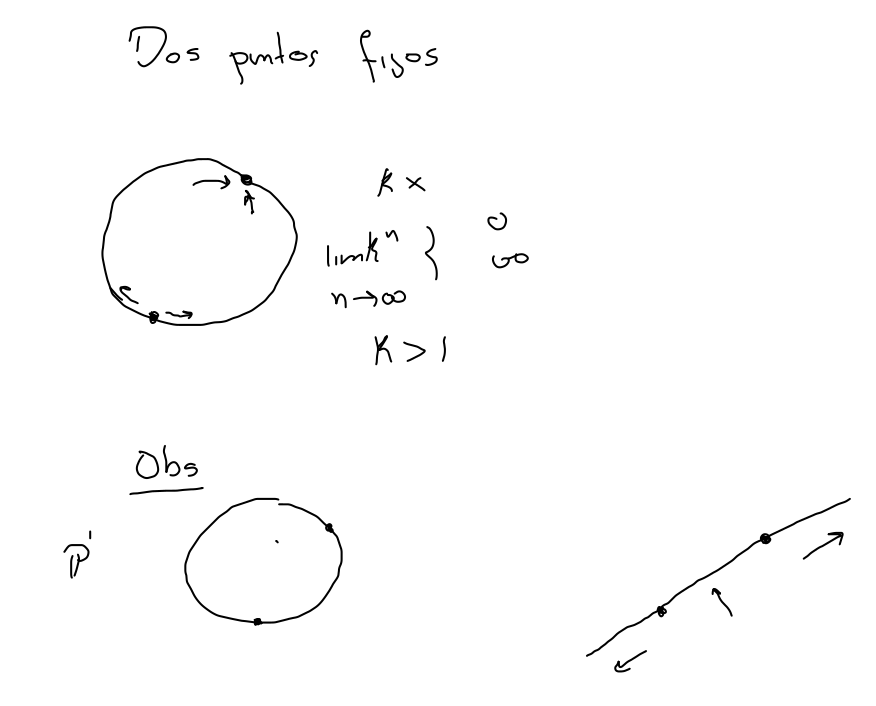 Dos puntos fijos
K x
lim kⁿ { 0
∞
n→∞
K > 1
Obs
P¹